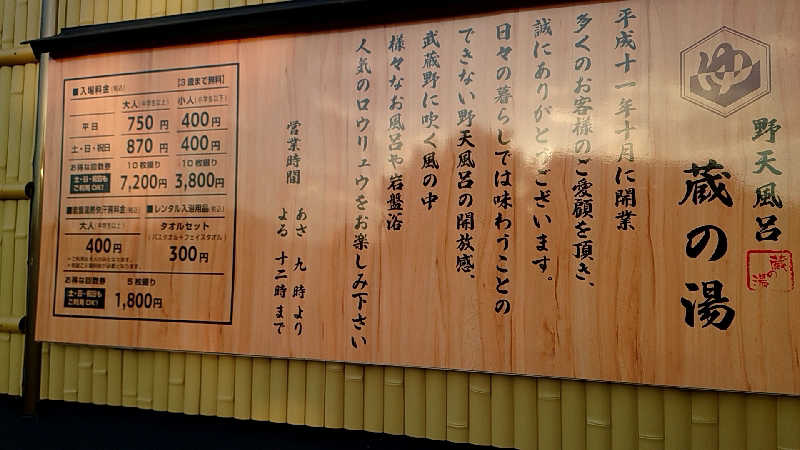 ゆ
野天風呂
蔵の湯
蔵の湯
平成十一年十月に開業
多くのお客様のご愛顧を頂き、
誠にありがとうございます。
日々の暮らしでは味わうことの
できない野天風呂の開放感、
武蔵野に吹く風の中
様々なお風呂や岩盤浴
人気のロウリュウをお楽しみ下さい
営業時間 あさ 九時より
よる 十二時まで
■入場料金(税込) 【3歳まで無料】
大人(中学生以上) 小人(小学生以下)
平日 750円 400円
土・日・祝日 870円 400円
お得な回数券 10枚綴り 10枚綴り
土・日・祝日も ご利用OK! 7,200円 3,800円
■岩盤浴料金(税込) ■レンタル入浴用品(税込)
大人(中学生以上) タオルセット
(バスタオル+フェイスタオル)
400円 300円
お得な回数券 5枚綴り
土・日・祝日も ご利用OK! 1,800円